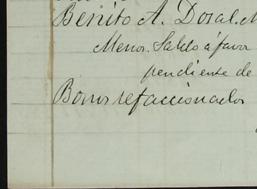 Benito A. Doral. M
Menos. Saldo á favor
pendiente de
Bonos refaccionados